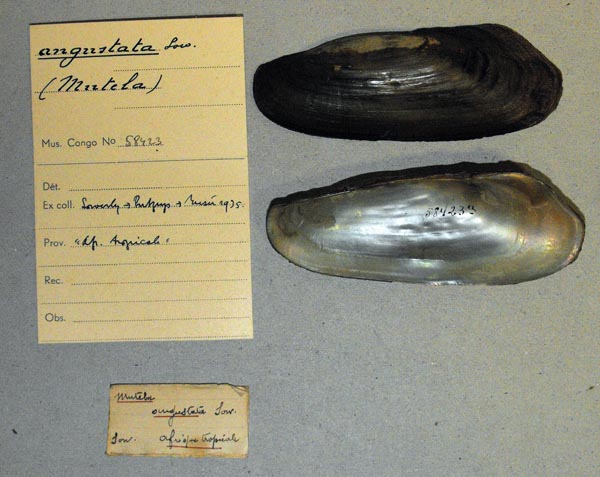 angustata Sow.
(Mutela)
Mus. Congo No 58423
Dét.
Ex coll. Sowerby → → Musée 1935.
Prov. "Af. tropicale"
Rec.
Obs.
58423
Mutela
angustata Sow.
Sow. afrique tropicale